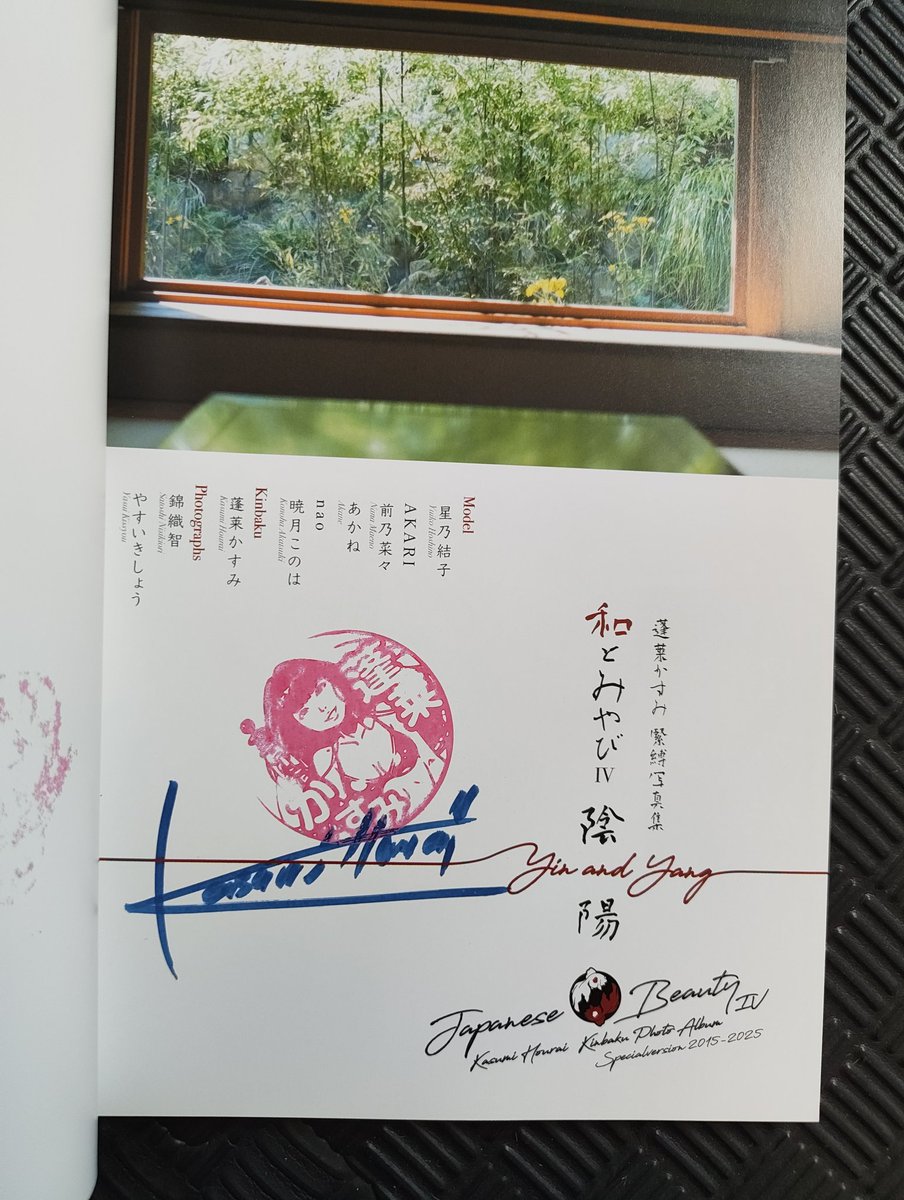 蓬莱かすみ 緊縛写真集
和とみやびIV 陰陽
Yin and Yang
Japanese Beauty IV
Kasumi Hourai Kinbaku Photo Album
Specialversion 2015-2025
Model
星乃結子
Yuiko Hoshino
AKARI
前乃菜々
Nana Maeno
あかね
Akane
nao
暁月このは
Konoha Akatsuki
Kinbaku
蓬莱かすみ
Kasumi Hourai
Photographs
錦織智
Satoshi Nishiori
やすいきしょう
Yasui Kisyou
蓬莱
かすみ
Kasumi Hourai